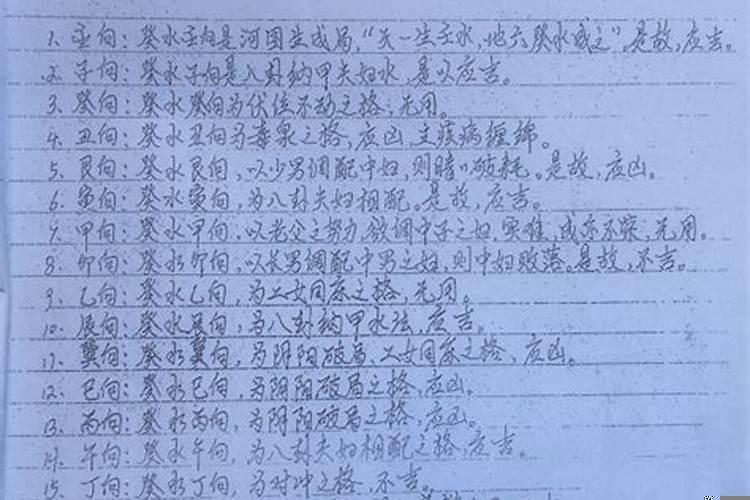 1. 壬向：癸水壬向是河图生成局，“天一生壬水，地六癸水成之”。是故，应吉。
2. 子向：癸水子向是八卦纳甲夫妇水，是以应吉。
3. 癸向：癸水癸向为伏位不动之格，无用。
4. 丑向：癸水丑向为毒泉之格，应凶，主疾病缠绵。
5. 艮向：癸水艮向，以少男调配中妇，则暗破耗。是故，应凶。
6. 寅向：癸水寅向，为八卦夫妇相配。是故，应吉。
7. 甲向：癸水甲向，以老父之努力，欲调中子之妇，实难，成亦不深，无用。
8. 卯向：癸水卯向，以长男调配中男之妇，则中妇败落。是故，不吉。
9. 乙向：癸水乙向，为二女同床之格，无用。
10. 辰向：癸水辰向，为八卦纳甲水法，应吉。
11. 巽向：癸水巽向，为阴阳破局、二女同床之格，应凶。
12. 巳向：癸水巳向，为阴阳破局之格，应凶。
13. 丙向：癸水丙向，为阴阳破局之格，应凶。
14. 午向：癸水午向，为八卦夫妇相配之格，应吉。
15. 丁向：癸水丁向，为对冲之格，不吉。